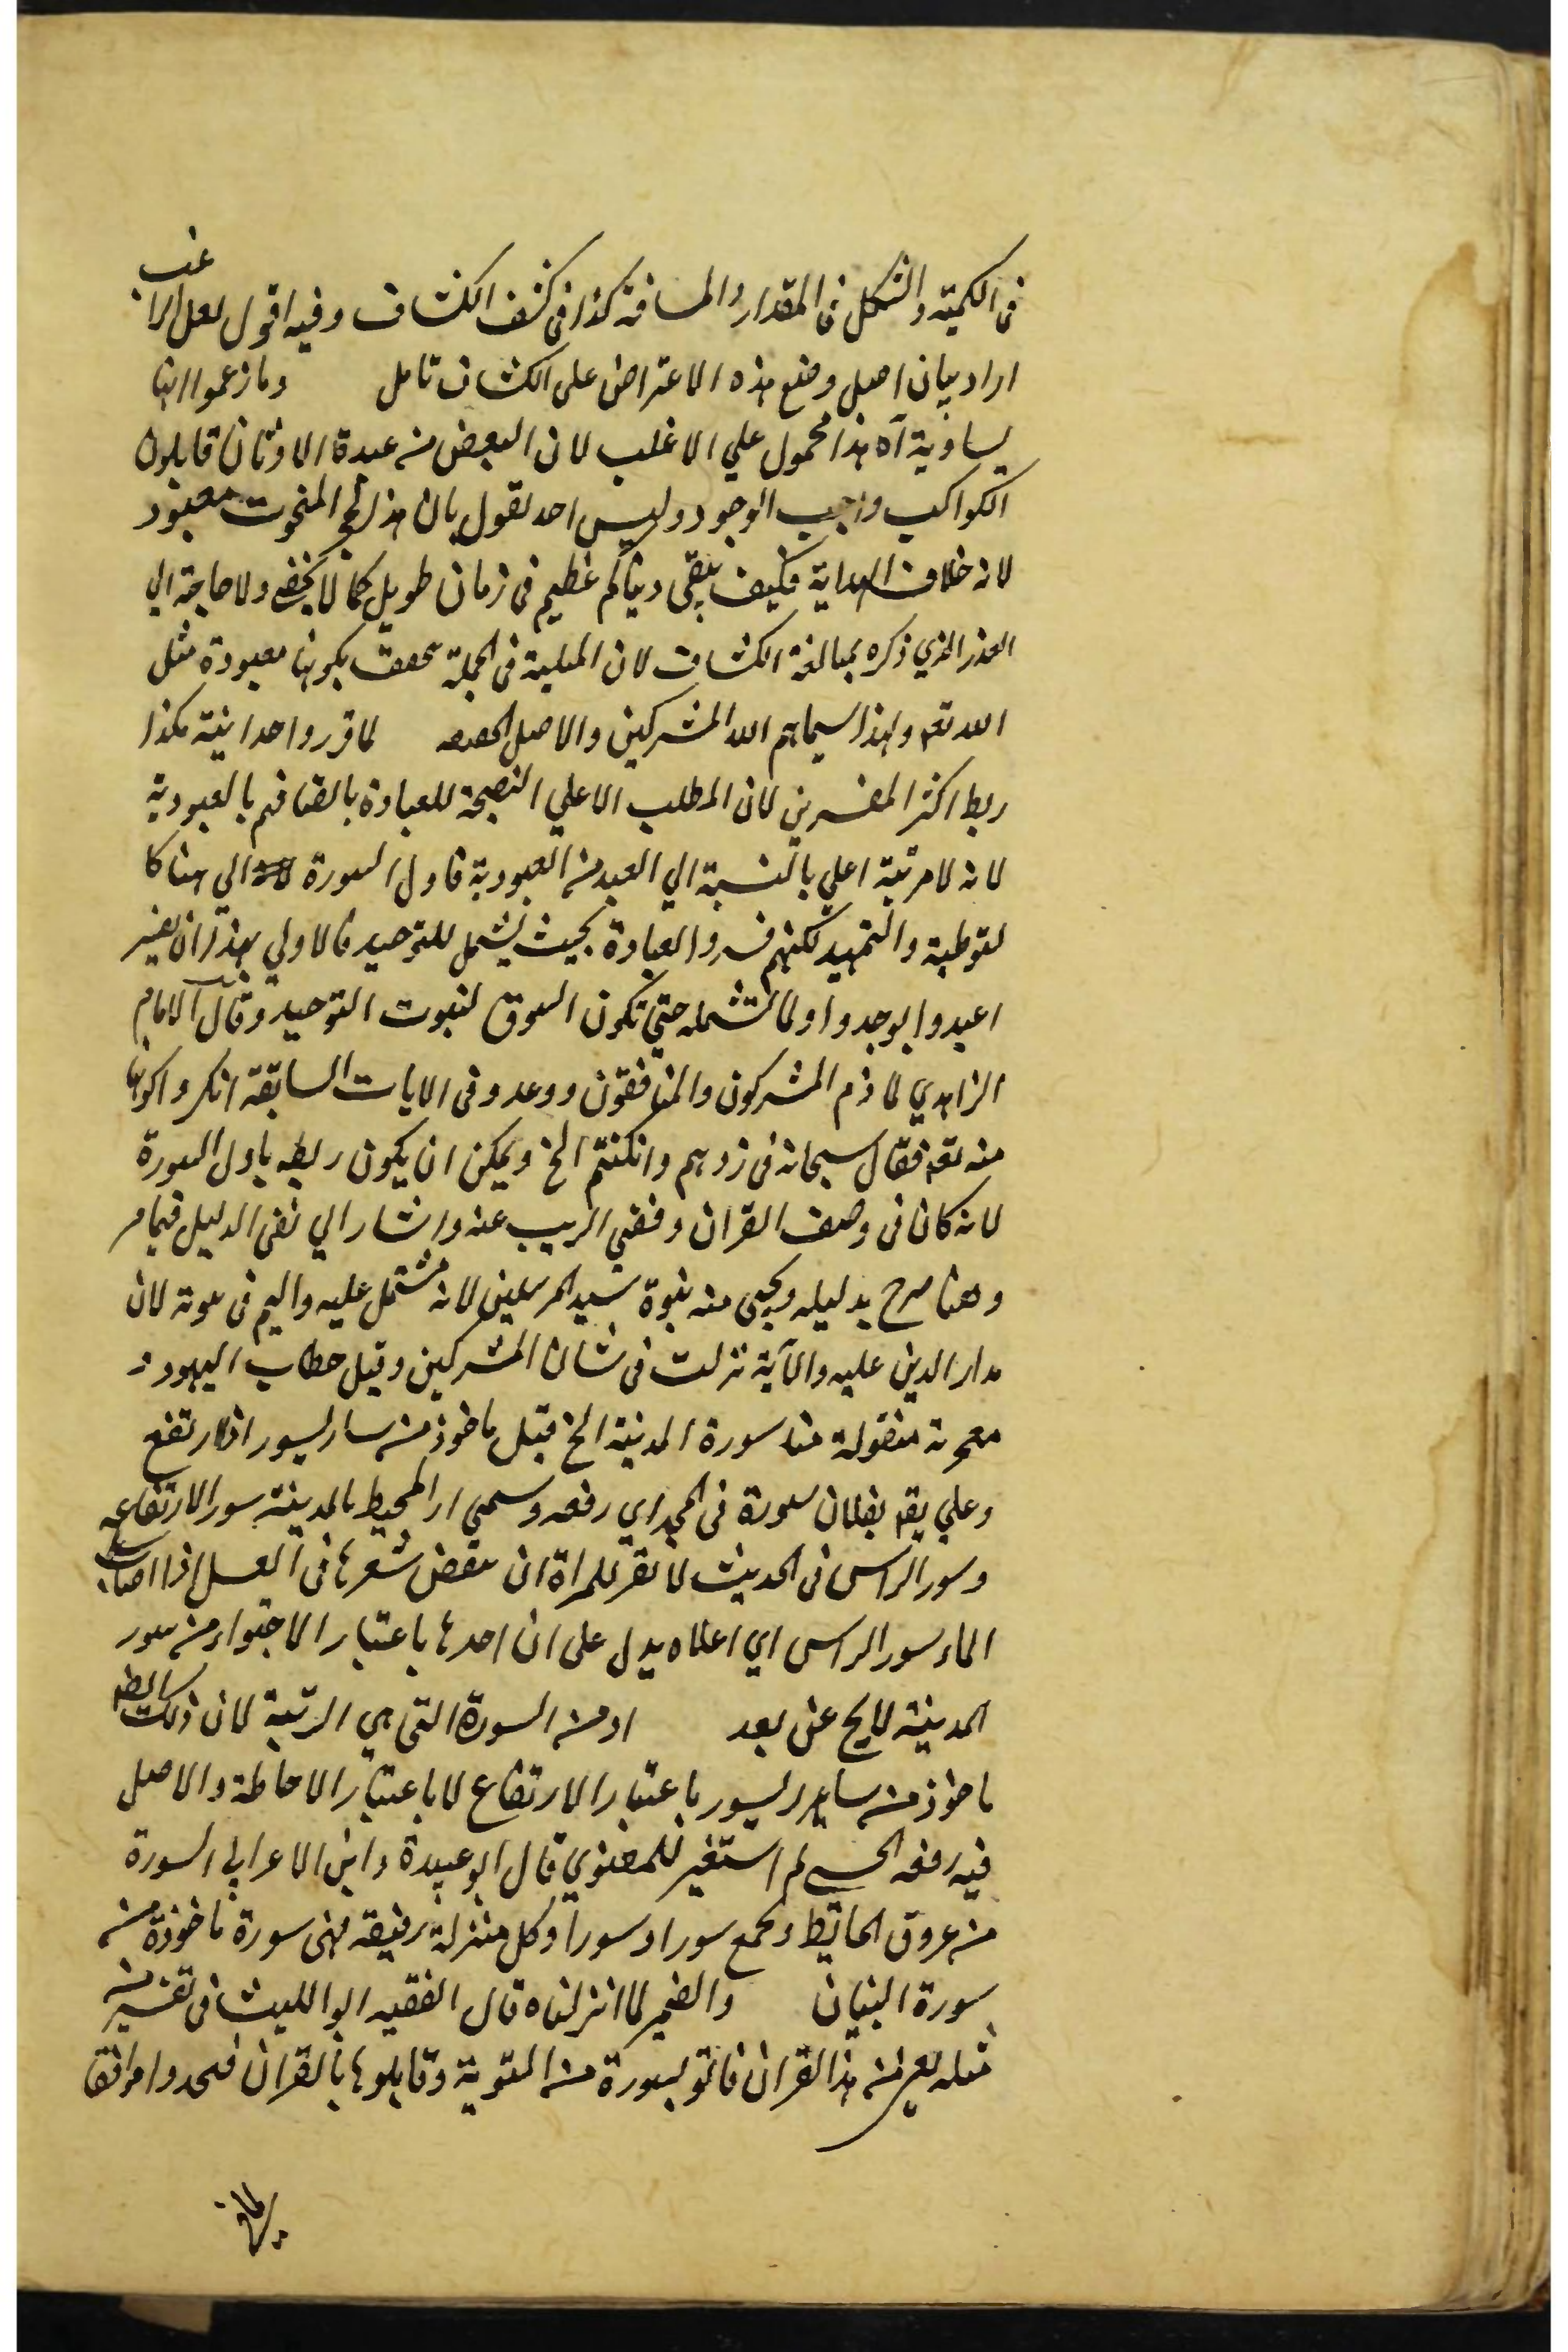 في الكمية والشكل في المقدار والمسافة كذا في كشف الكشاف وفيه اقول لعل الراغب
اراد بيان اصل وضع هذه الاعتراض على الكشاف تامل وما زعموا انها
يساوية آه هذا محمول علي الاغلب لان البعض من عبدة الاوثان قايلون
الكواكب واجب الوجود وليس احد يقول بان هذا الحجر المنحوت معبود
لانه خلاف البداية فكيف يبقى دينا لم عظيم في زمان طويل كما لا يخفى ولا حاجة الي
العذر الذي ذكره بمبالغة الكشاف لان المثلية في الجملة تحقق بكونها معبودة مثل
الله تعه ولهذا سيماهم الله المشركين والاصل لما قرر واحدانية هكذا
ربط اكثر المفسرين لان المطلب الاعلي النصيحة للعبادة بالصافهم بالعبودية
لانه لا مرتبة اعلي بالنسبة الي العبد من العبودية فاول السورة الي هنا كا
لتوطية والتمهيد لكنهم فسروا العبادة بحيث يشمل للتوحيد فالاولي بهذا ان يفسر
اعبدوا بوحدوا ولما تشمله حتي تكون السوق لثبوت التوحيد وقال الامام
الزاهدي لما ذم المشركون والمنافقون ووعدو في الايات السابقة انكروا كونها
منه تعه فقال سبحانه في ردهم وان كنتم الخ ويمكن ان يكون ربطه باول السورة
لانه كان في وصف القران ونفي الريب عنه واشار الي نفى الدليل فيما مر
وهنا صرح بدليله ويجي منه نبوة سيد المرسلين لانه مشتمل عليه واليهم في لان
مدار الدين عليه والآية نزلت في شان المشركين وقيل خطاب اليهود و
منقولة منا سورة المدينة الخ قيل ماخوذ من سار يسور اذا ارتفع
وعلي يقه بفلان سورة في المجد اي رفعه وسمي المحيط بالمدينة سور الارتفاعه
وسور الراس في الحديث لا تقر للمراة ان تنقض شعرها في الغسل اذا اصاب
الماء سور الراس اي اعلاه يدل على ان احدها باعتبار الاحتواء من سور
المدينة لا يخ عن بعد او من السورة التي هي الرتبة لان ذلك
ماخوذ من سار يسور باعتبار الارتفاع لا باعتبار الاحاطة والاصل
فيه رفعه الحسي ثم استعير للمعنوي قال ابو عبيدة وابن الاعرابي السورة
من عروق الحائط وجمع سورا وسورا وكل منزلة رفيعة فهى سورة ماخوذة من
سورة البنيان والضمير لما انزلناه قال الفقيه ابو الليث في تفسير من
مثله يعنى من هذا القران فاتو بسورة من التورية وقابلوها بالقران فتجدوا موافقا